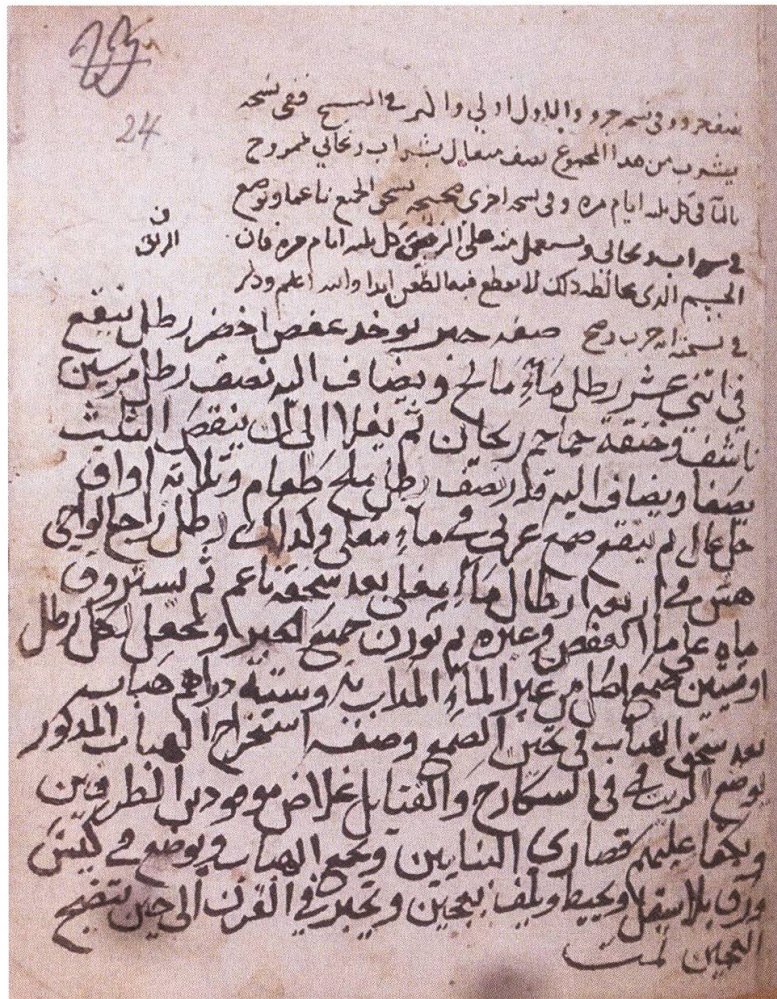 24
نصف جزو وفى نسخه جزو والاول اولى والهر فى النسخ ففى نسخه
يشرب من هذا المجموع نصف مثقال بشراب ريحانى ممزوج
بالماء فى كل ثلثه ايام مره وفى نسخه اخرى صحيحه يسحق الجميع ناعما ويوضع
فى شراب ريحانى ويستعمل منه على الريق كل ثلثه ايام مره فان
فى الريق
الجسم الذى يخالطه ذلك لا يقطع فيه الطعن ابدا والله اعلم وذكر
فى نسخته انه جرب وصح صفه حبر يوخذ عفص اخضر رطل ينقع
فى اثنى عشر رطل ماءٍ مَالح ويضاف اليه نصف رطل مرسين
ناشف وخنقة حماحم ريحان ثم يغلا الى ان ينقص الثلث
يصفا ويضاف اليه قدر نصف رطل ملح طعام وثلاثه اواق
خل عال ثم ينقع صمغ عربى فى ماءٍ مغلى وكذلك رطل زاج
هش فى اربعه ارطال ماءٍ مغلى بعد سحقه ناعم ثم يستروق
ماه على ما العفص وغيره ثم يوزن جميع الحبر ويجعل لكل رطل
اوقيتين صمغ من غير الماءِ المذاب به وستة دراهم هباب
بعد سحق الهباب فى عين الصمغ وصفه استخراج الهباب المذكور
يوضع الزيت فى السكارج والفتايل غلاض موجودين الطرفين
ويكفا عليهم قصارى البنايين ويجمع الهباب ويوضع فى كيس
ورق بلا سقل ويخيط ويلف بعجين ويخبز فى الفرن الى حين ينضج
العجين تمت